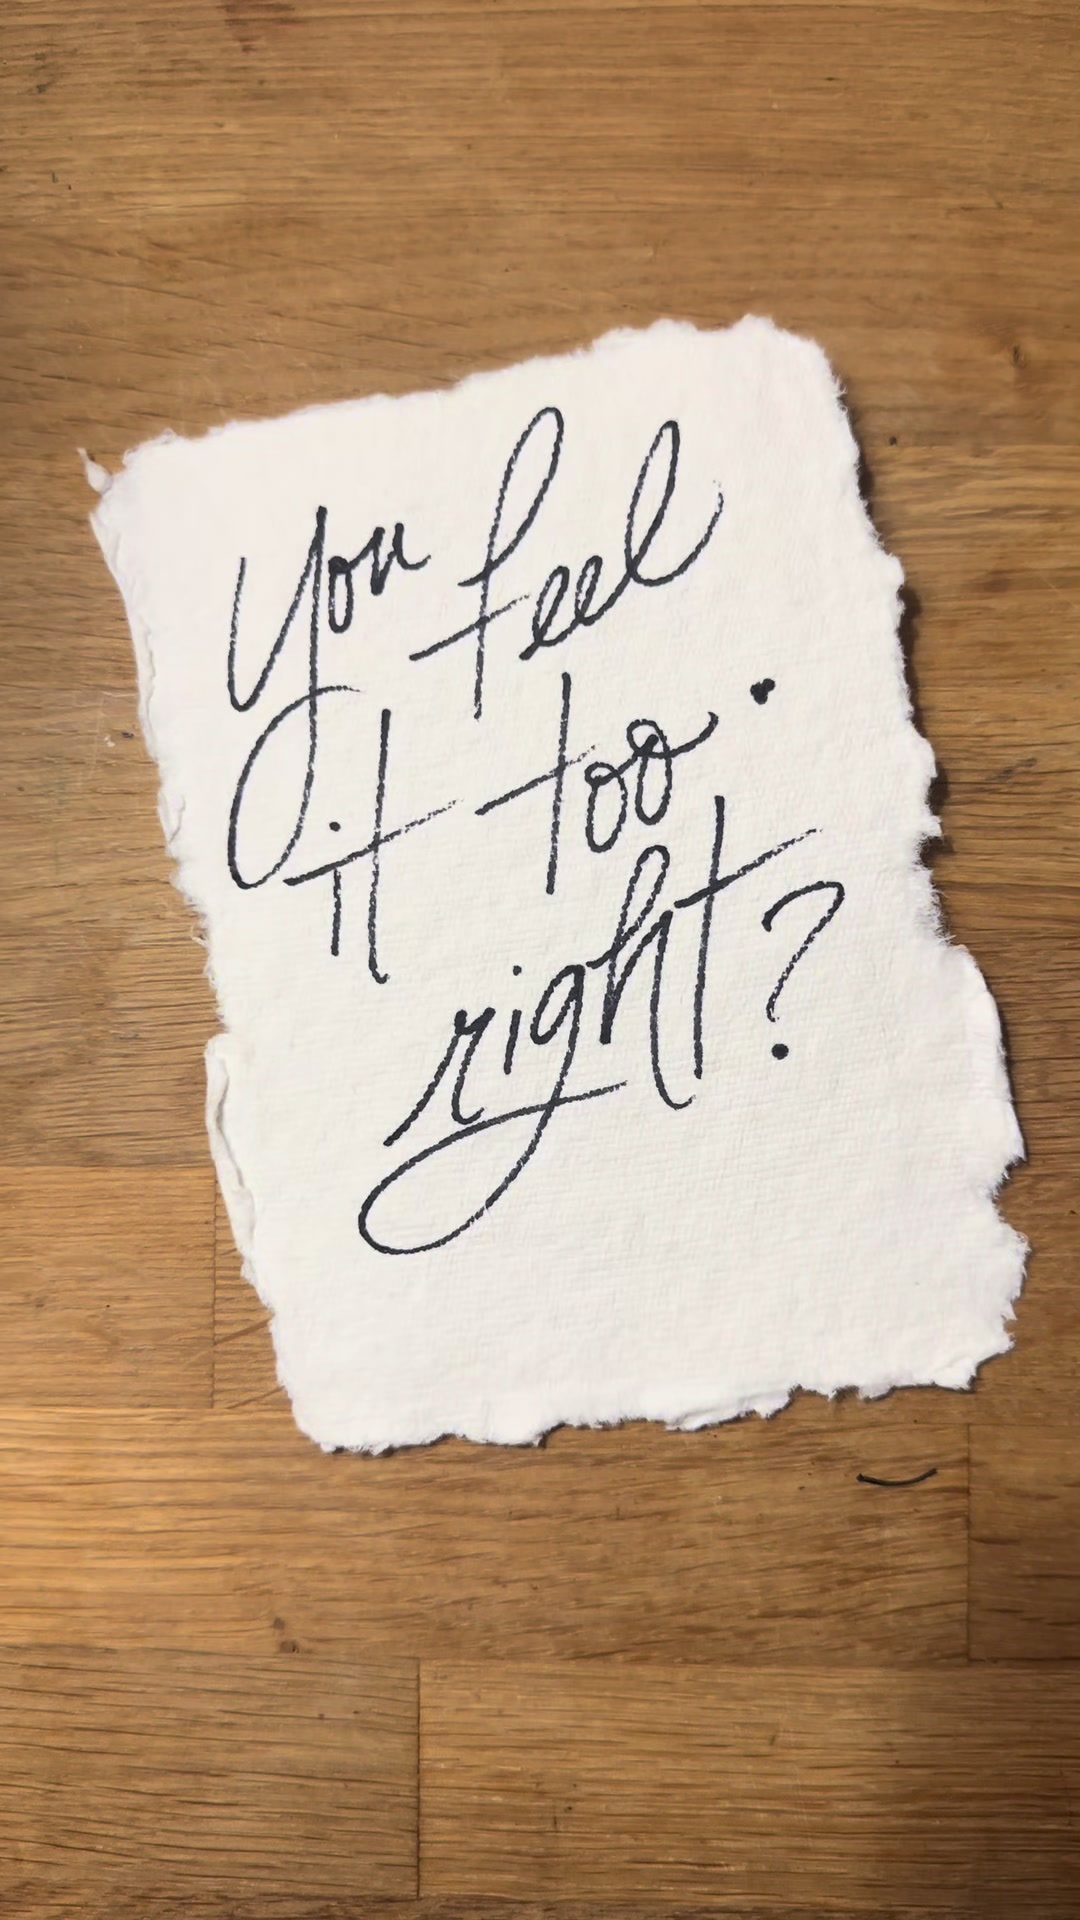 you feel
it too.
right?